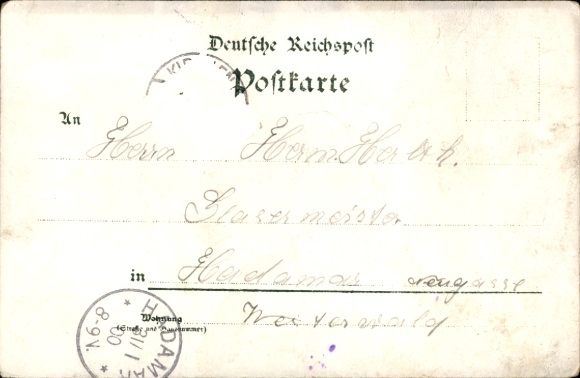 Deutsche Reichspost
Postkarte
An Herrn Herm. Herlth.
Glasermeister
in Hadamar Neugasse
Wohnung
(Straße und Hausnummer)
Westerwald
HADAMAR
31/1
00
8-9V.